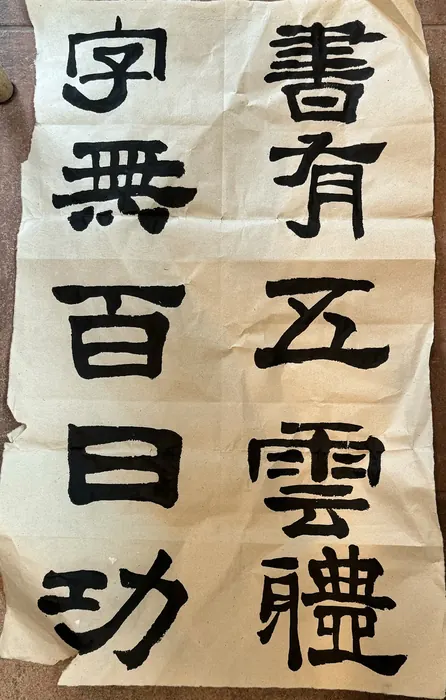 書有五雲體
字無百日功